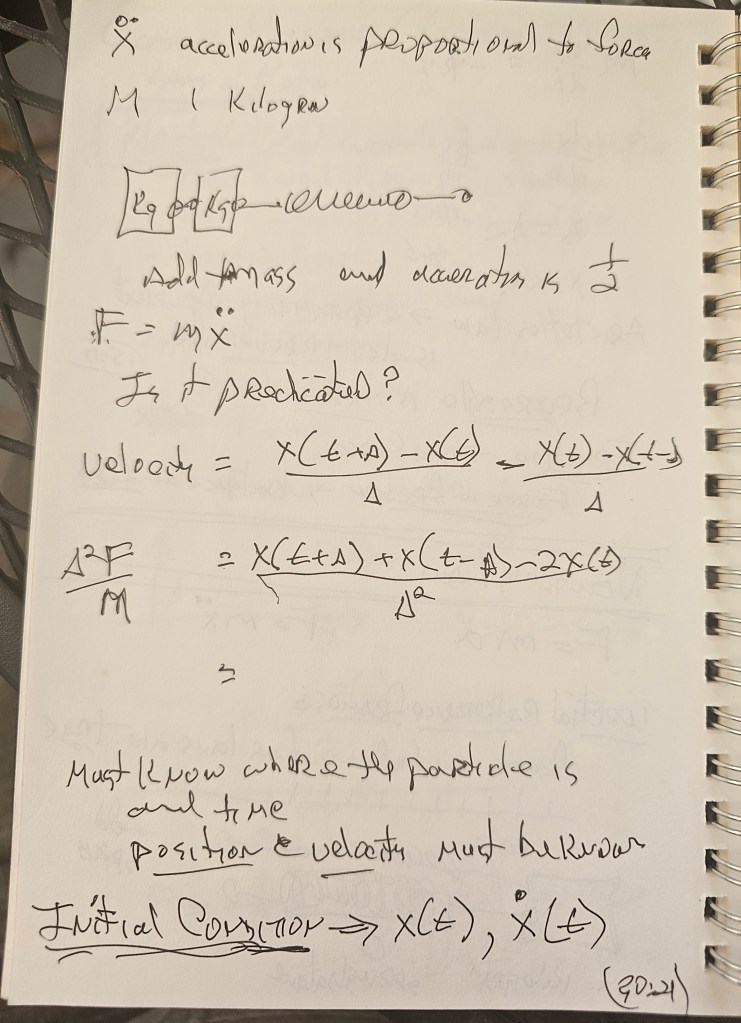 ẍ acceleration is proportional to force
M 1 Kilogram
Kg Kg
Add mass and acceration is 1/2
F = mẍ
Is it predicated?
Velocity = X(t+Δ) - X(t) / Δ - X(t) - X(t-Δ) / Δ
Δ²F / M = X(t+Δ) + X(t-Δ) - 2X(t) / Δ²
=
Must Know where the particle is
and time
position & velocity must be Known
Initial Condition ⇒ x(t), ẋ(t)